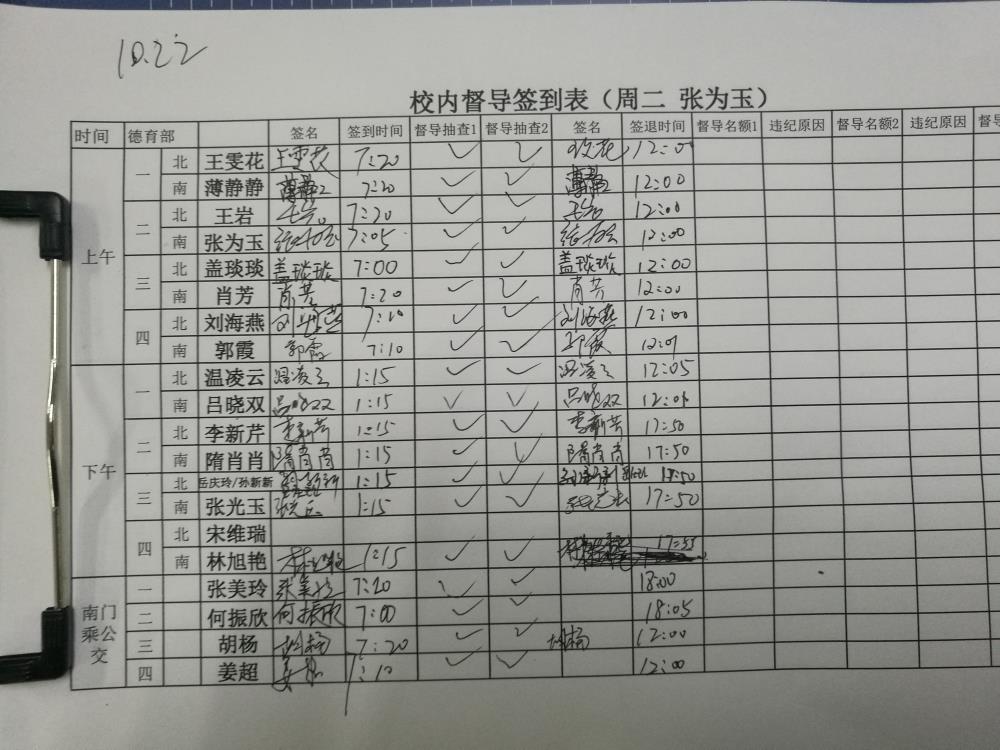 10.22
校内督导签到表（周二 张为玉）
时间 德育部 签名 签到时间 督导抽查1 督导抽查2 签名 签退时间 督导名额1 违纪原因 督导名额2 违纪原因 督导
上午 一 北 王雯花 王雯花 7:20 ✓ ✓ 12:00
南 薄静静 薄静静 7:20 ✓ ✓ 薄静静 12:00
二 北 王岩 王岩 7:20 ✓ ✓ 王岩 12:00
南 张为玉 张为玉 7:05 ✓ ✓ 张为玉 12:00
三 北 盖琰琰 盖琰琰 7:00 ✓ ✓ 盖琰琰 12:00
南 肖芳 肖芳 7:20 ✓ ✓ 肖芳 12:00
四 北 刘海燕 刘海燕 ✓ ✓ 刘海燕 12:00
南 郭霞 郭霞 7:10 ✓ ✓ 郭霞
下午 一 北 温凌云 温凌云 1:15 ✓ ✓ 温凌云 12:05
南 吕晓双 吕晓双 1:15 ✓ ✓ 吕晓双
二 北 李新芹 李新芹 1:15 ✓ ✓ 李新芹 17:50
南 隋肖肖 隋肖肖 1:15 ✓ 隋肖肖 17:50
三 北 岳庆玲/孙新新 1:15 ✓ ✓
南 张光玉 张光玉 1:15 ✓ ✓ 17:50
四 北 宋维瑞
南 林旭艳 林旭艳 1:15 ✓ ✓ 17:55
南门乘公交 一 张美玲 张美玲 7:20 ✓ ✓ 18:00
二 何振欣 何振欣 7:00 ✓ ✓ 18:05
三 胡杨 胡杨 7:20 ✓ ✓ 胡杨 12:00
四 姜超 姜超 7:10 ✓ ✓ 12:00